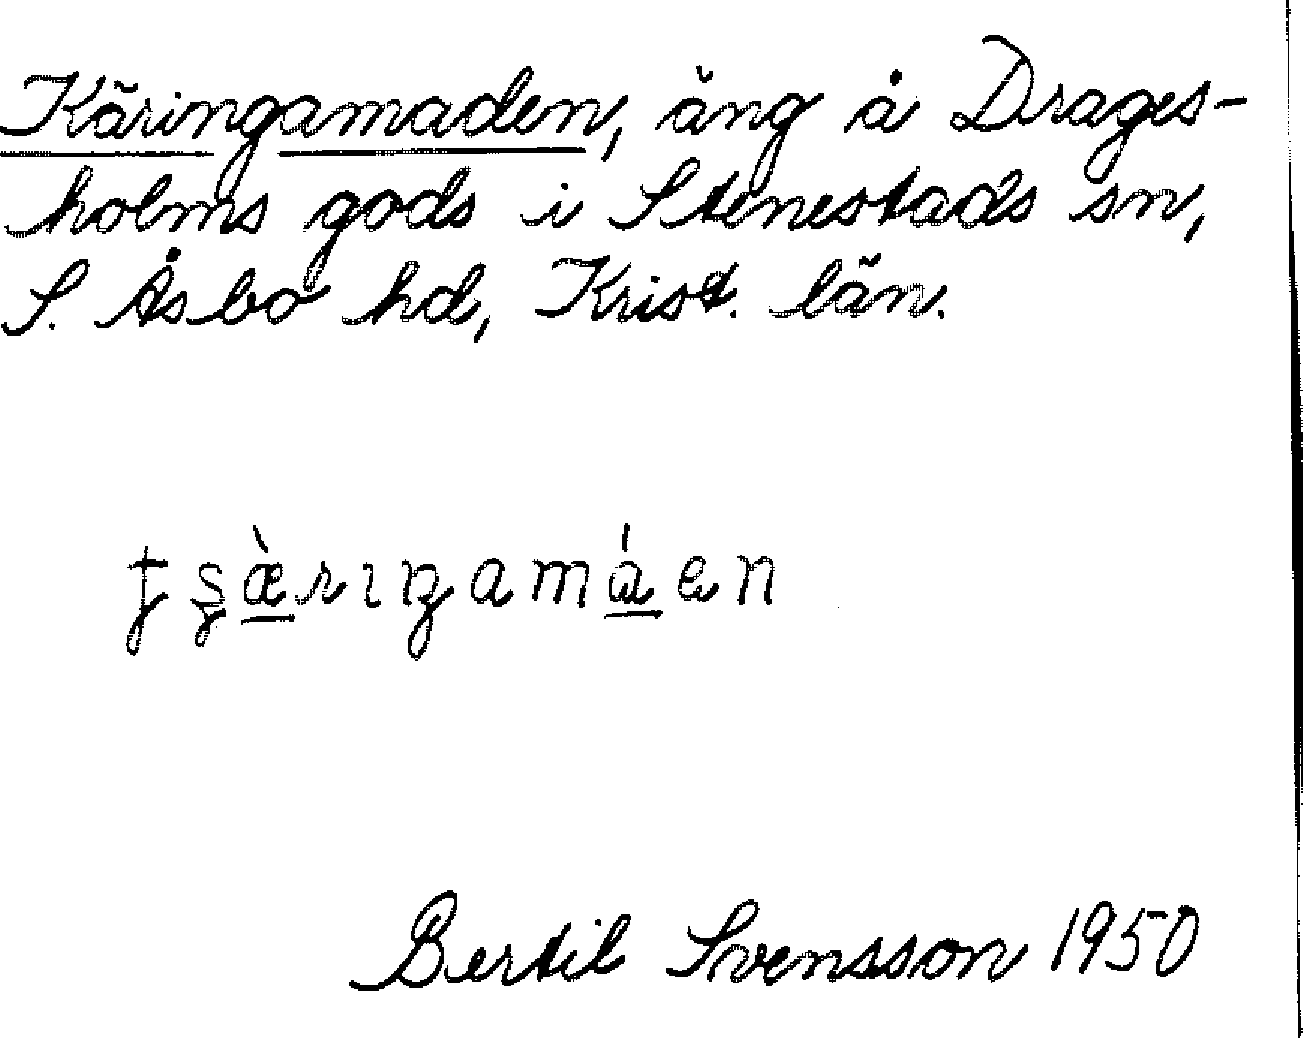 Käringamaden, äng å Drages-
holms gods i Stenestads sn,
S. Åsbo hd, Krist. län.
Bertil Svensson 1950